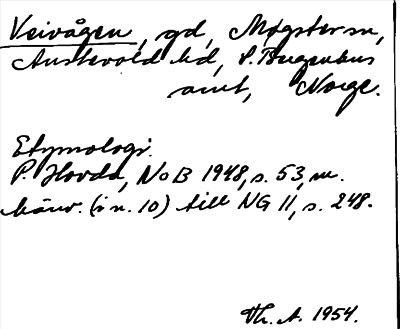 Veivågen, gd, Møgster sn,
Austevold hd, S. Bergenhus
amt, Norge.
Etymologi.
P. Hovda, NoB 1948, s. 53, m.
hänv. (i n. 10) till NG 11, s. 248.
Th. A. 1954.